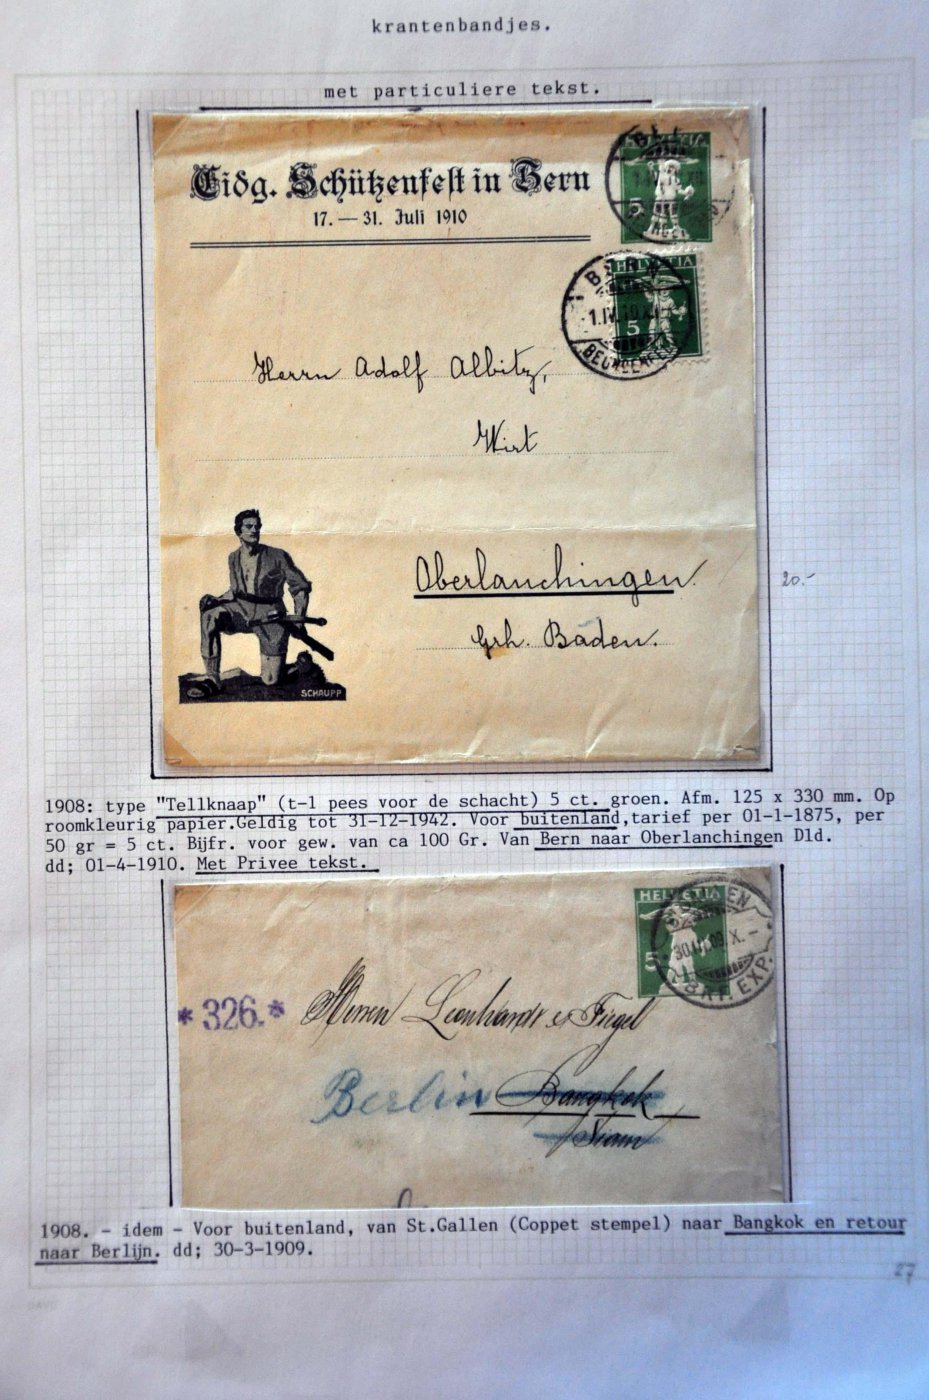 krantenbandjes.
met particuliere tekst.
Eidg. Schützenfest in Bern
17. — 31. Juli 1910
HELVETIA
5
BERN
1.IV.10.XI-
HELVETIA
5
Herrn Adolf Albitz,
Wirt
Oberlauchingen.
Grh. Baden.
SCHAUPP
20.-
1908: type "Tellknaap" (t-1 pees voor de schacht) 5 ct. groen. Afm. 125 x 330 mm. Op
roomkleurig papier.Geldig tot 31-12-1942. Voor buitenland,tarief per 01-1-1875, per
50 gr = 5 ct. Bijfr. voor gew. van ca 100 Gr. Van Bern naar Oberlanchingen Dld.
dd; 01-4-1910. Met Privee tekst.
HELVETIA
5
BRF. EXP.
*326.*
Herren Leonhardt & Fiegel
Berlin Bangkok
Siam
1908. - idem - Voor buitenland, van St.Gallen (Coppet stempel) naar Bangkok en retour
naar Berlijn. dd; 30-3-1909.
27
DAVO